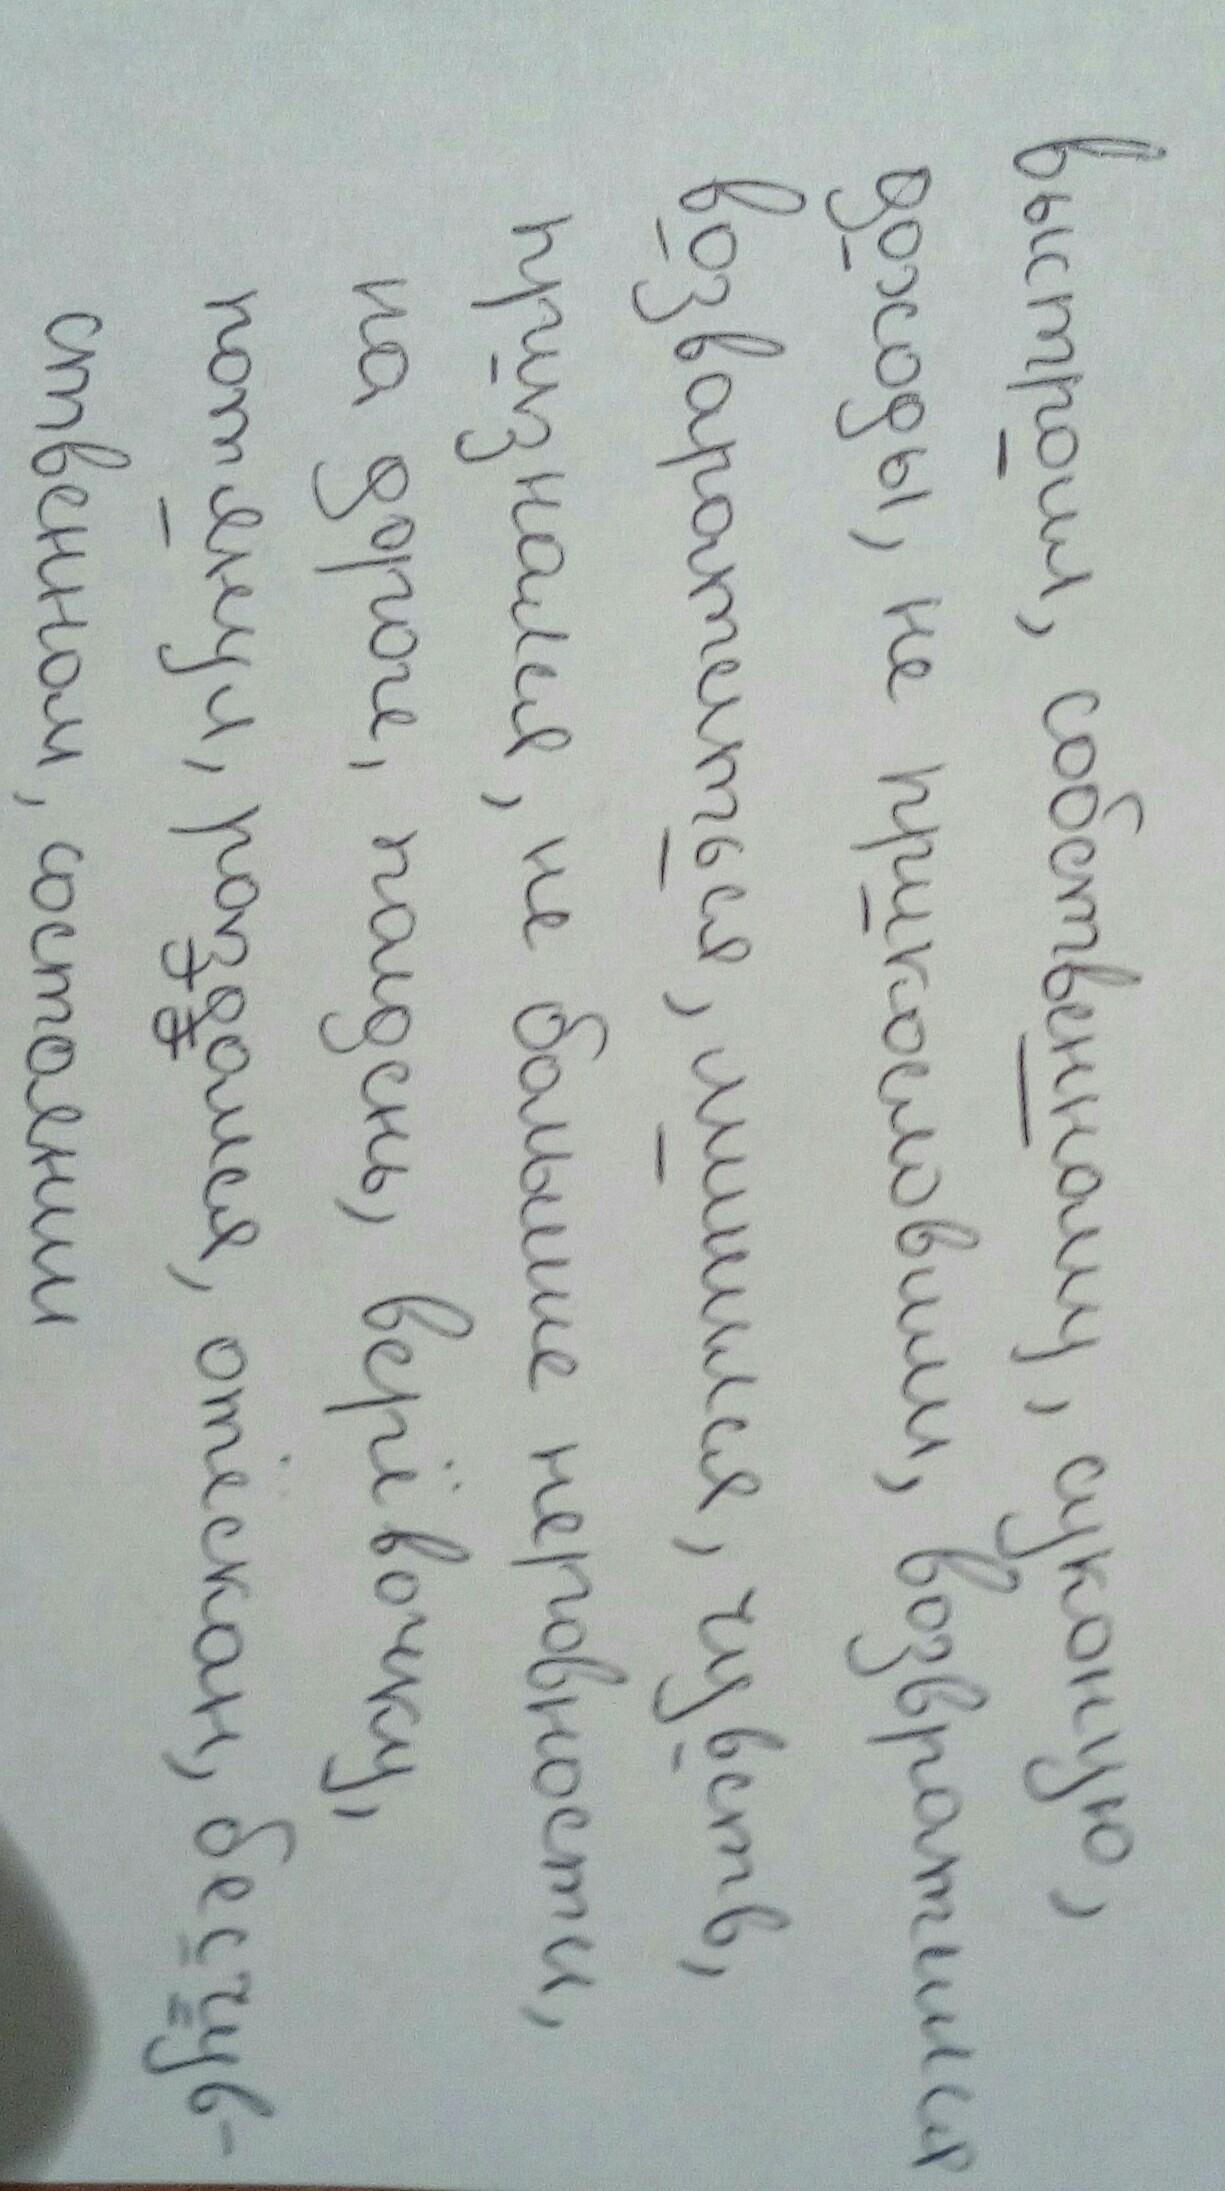 выстроил, собственному, суконую,
доходы, не прикословил, возвратился
возваратиться, лишился, чувств,
признался, не большие неровности,
на дороге, полдень, верёвочку,
потянул, раздался, отёскан, бесчув-
ственном, состоянии